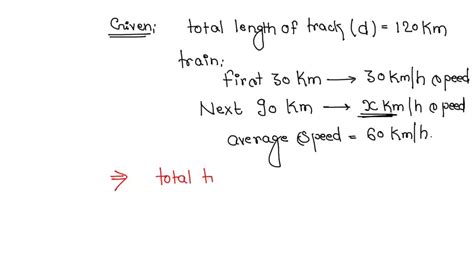 Given: total length of track (d) = 120 Km
train:
first 30 Km → 30 Km/h speed
Next 90 Km → x Km/h speed
average speed = 60 Km/h.
⇒ total t